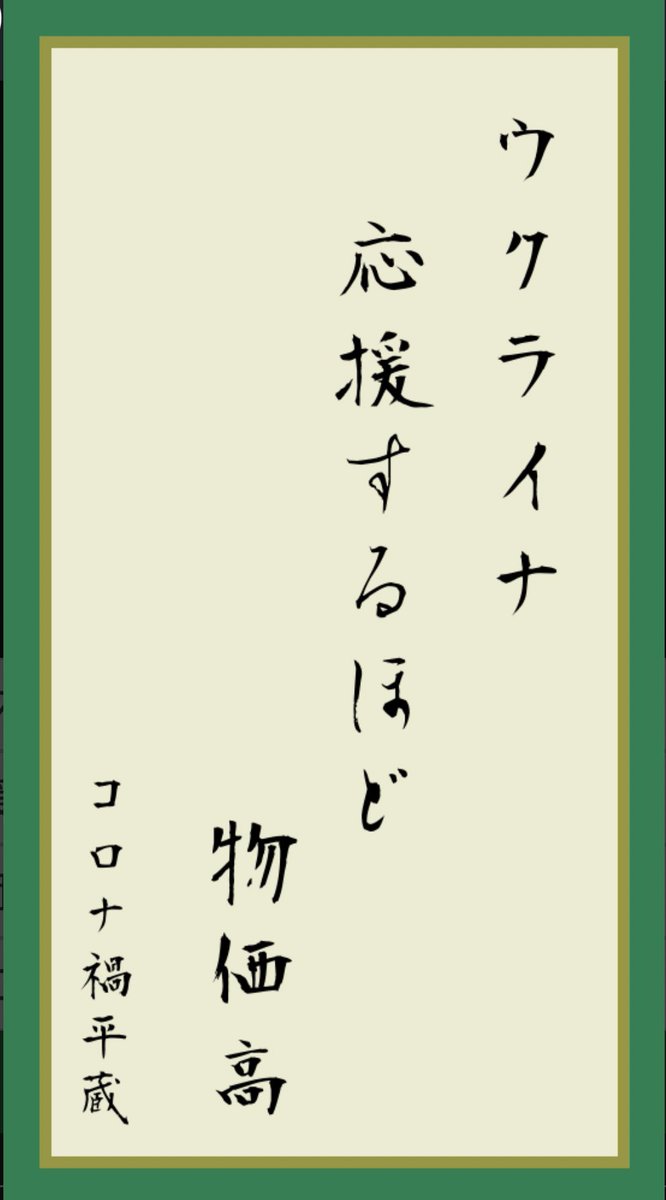 ウクライナ
応援するほど
物価高
コロナ禍平蔵